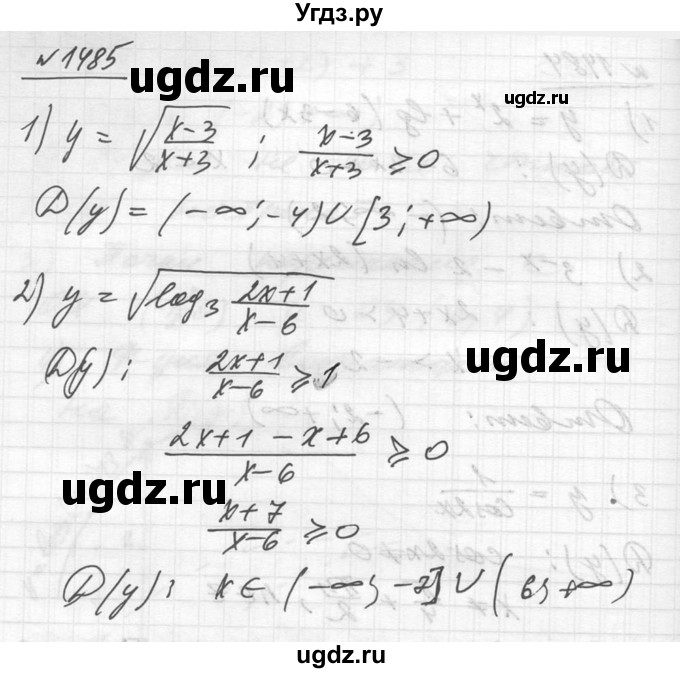 Угдз.ру
№1485
ugdz.ru ugdz.ru
1) y = √((x-3)/(x+3)) ; (x-3)/(x+3) ⩾ 0
D(y) = (-∞; -4) ∪ [3; +∞)
ugdz.ru
2) y = √(log₃ (2x+1)/(x-6))
D(y); (2x+1)/(x-6) ⩾ 1
ugdz.ru ugdz.ru
(2x+1-x+6)/(x-6) ⩾ 0
ugdz.ru
(x+7)/(x-6) ⩾ 0
D(y): x ∈ (-∞; -7] ∪ (6; +∞)
ugdz.ru
ugdz.ru